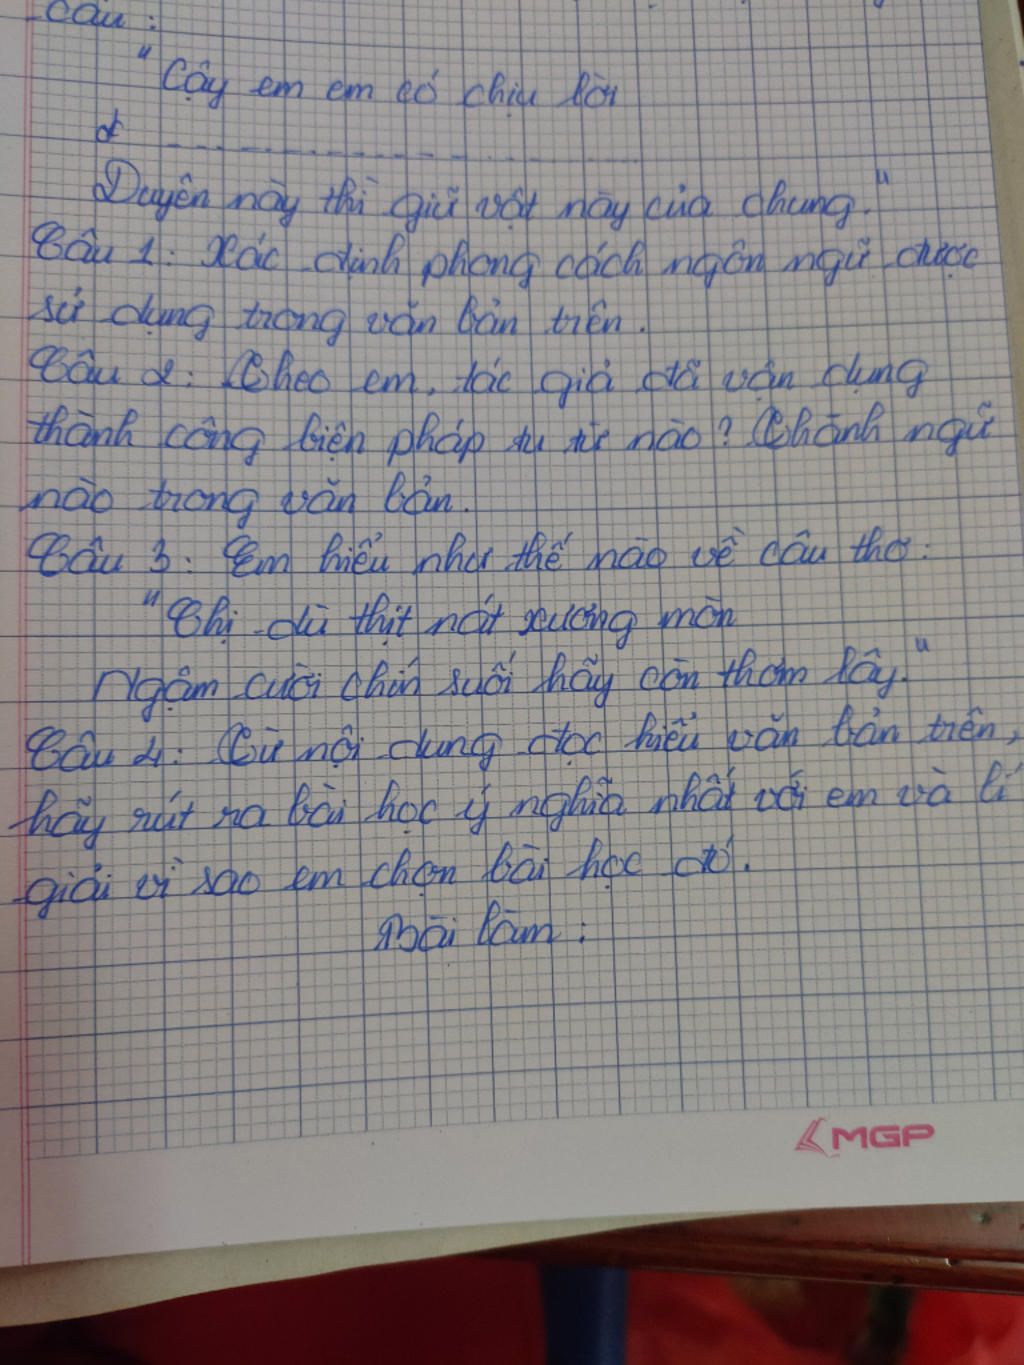 câu :
"Cậy em em có chịu lời
Duyên này thì giữ vật này của chung."
Câu 1: Xác định phong cách ngôn ngữ được
sử dụng trong văn bản trên.
Câu 2: Theo em, tác giả đã vận dụng
thành công biện pháp tu từ nào? Thành ngữ
nào trong văn bản.
Câu 3: Em hiểu như thế nào về câu thơ:
"Chị dù thịt nát xương mòn
Ngậm cười chín suối hãy còn thơm lây."
Câu 4: Từ nội dung đọc hiểu văn bản trên,
hãy rút ra bài học ý nghĩa nhất với em và lí
giải vì sao em chọn bài học đó.
Bài làm:
MGP